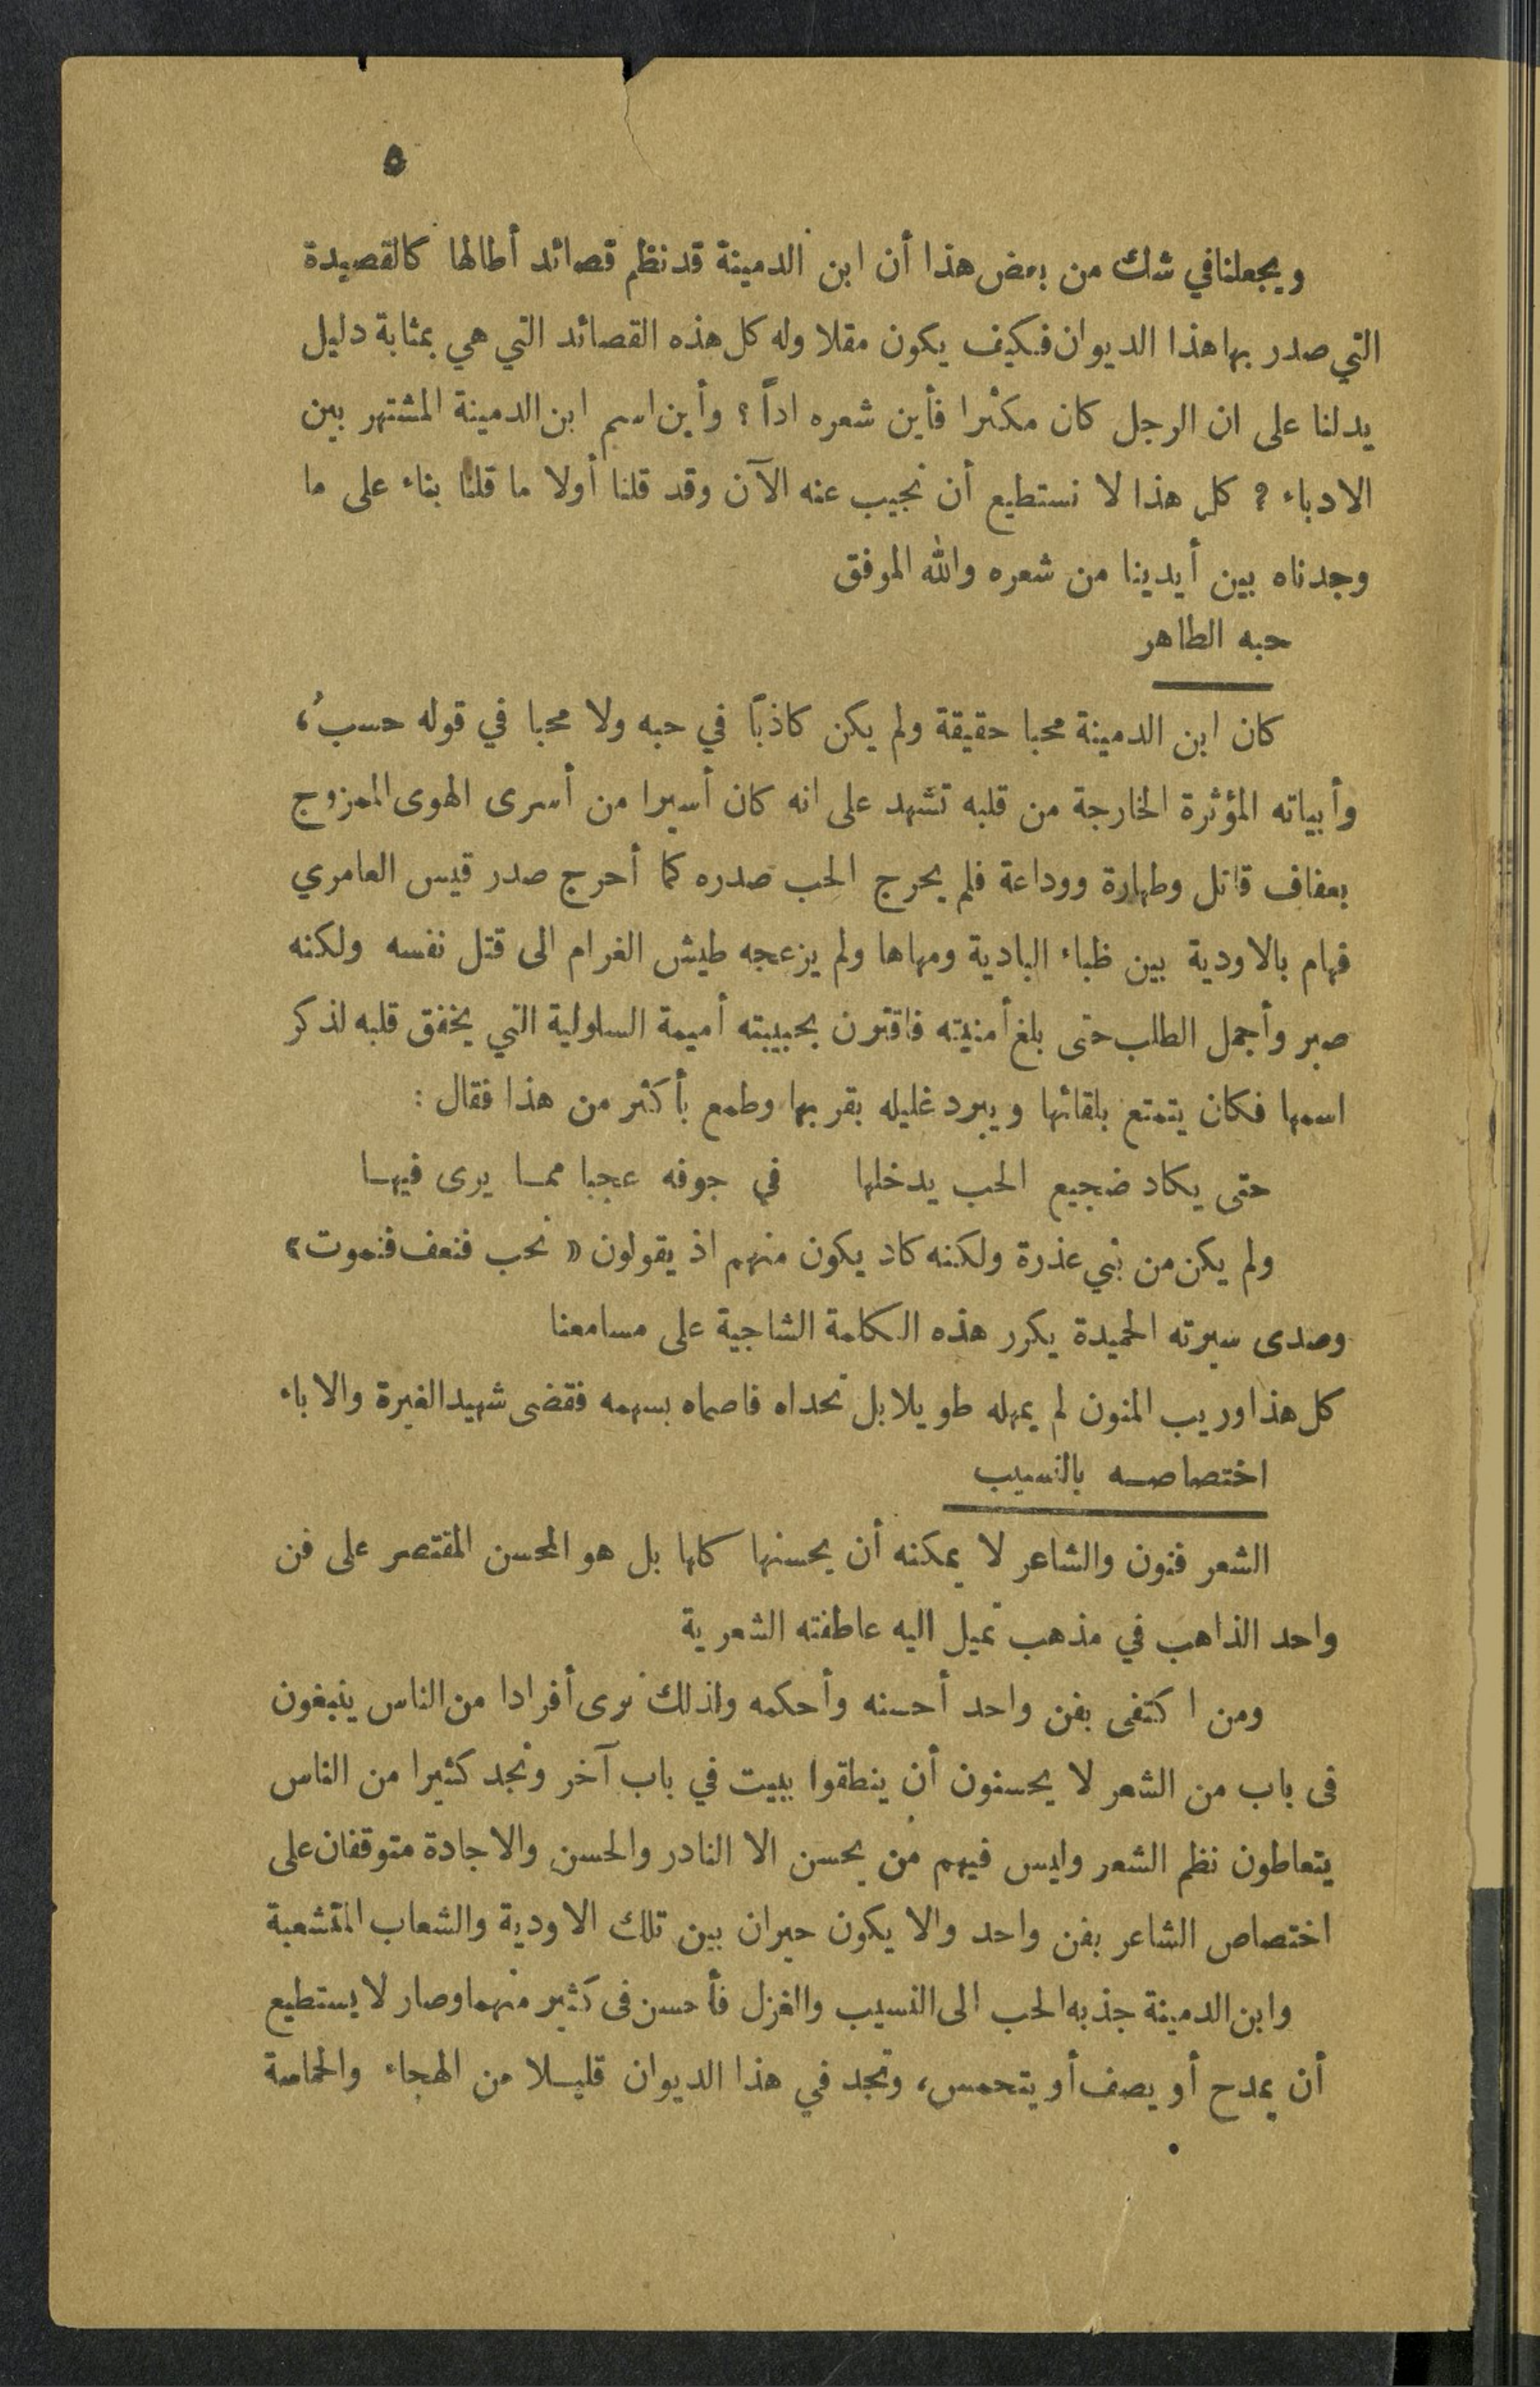 ٥
ويجعلنا في شك من بعض هذا أن ابن الدمينة قد نظم قصائد أطالها كالقصيدة
التي صدر بها هذا الديوان فكيف يكون مقلا وله كل هذه القصائد التي هي بمثابة دليل
يدلنا على ان الرجل كان مكثرا فأين شعره اداً ؟ وأين اسم ابن الدمينة المشتهر بين
الادباء ؟ كل هذا لا نستطيع أن نجيب عنه الآن وقد قلنا أولا ما قلنا بناء على ما
وجدناه بين أيدينا من شعره والله الموفق
حبه الطاهر
كان ابن الدمينة محبا حقيقة ولم يكن كاذبًا في حبه ولا محبا في قوله حسبُ،
وأبياته المؤثرة الخارجة من قلبه تشهد على انه كان أسيرا من أسرى الهوى الممزوج
بعفاف قاتل وطهارة ووداعة فلم يحرج الحب صدره كما أحرج صدر قيس العامري
فهام بالاودية بين ظباء البادية ومهاها ولم يزعجه طيش الغرام الى قتل نفسه ولكنه
صبر وأجمل الطلب حتى بلغ أمنيته فاقترن بحبيبته أميمة السلولية التي يخفق قلبه لذكر
اسمها فكان يتمتع بلقائها ويبرد غليله بقربها وطمع بأكثر من هذا فقال :
حتى يكاد ضجيع الحب يدخلها في جوفه عجبا ممـا يرى فيهـا
ولم يكن من بني عذرة ولكنه كاد يكون منهم اذ يقولون « نحب فنعف فنموت »
وصدى سيرته الحميدة يكرر هذه الكلمة الشاجية على مسامعنا
كل هذا وريب المنون لم يمهله طويلا بل تحداه فاصماه بسهمه فقضى شهيد الغيرة والاباء
اختصاصـه بالنسيب
الشعر فنون والشاعر لا يمكنه أن يحسنها كلها بل هو المحسن المقتصر على فن
واحد الذاهب في مذهب تميل اليه عاطفته الشعرية
ومن اكتفى بفن واحد أحسنه وأحكمه ولذلك نرى أفرادا من الناس ينبغون
فى باب من الشعر لا يحسنون أن ينطقوا ببيت في باب آخر ونجد كثيرا من الناس
يتعاطون نظم الشعر وليس فيهم من يحسن الا النادر والحسن والاجادة متوقفان على
اختصاص الشاعر بفن واحد والا يكون حيران بين تلك الاودية والشعاب المتشعبة
وابن الدمينة جذبه الحب الى النسيب والغزل فأحسن فى كثير منهما وصار لا يستطيع
أن يمدح أو يصف أو يتحمس، وتجد في هذا الديوان قليـلا من الهجاء والحماسة